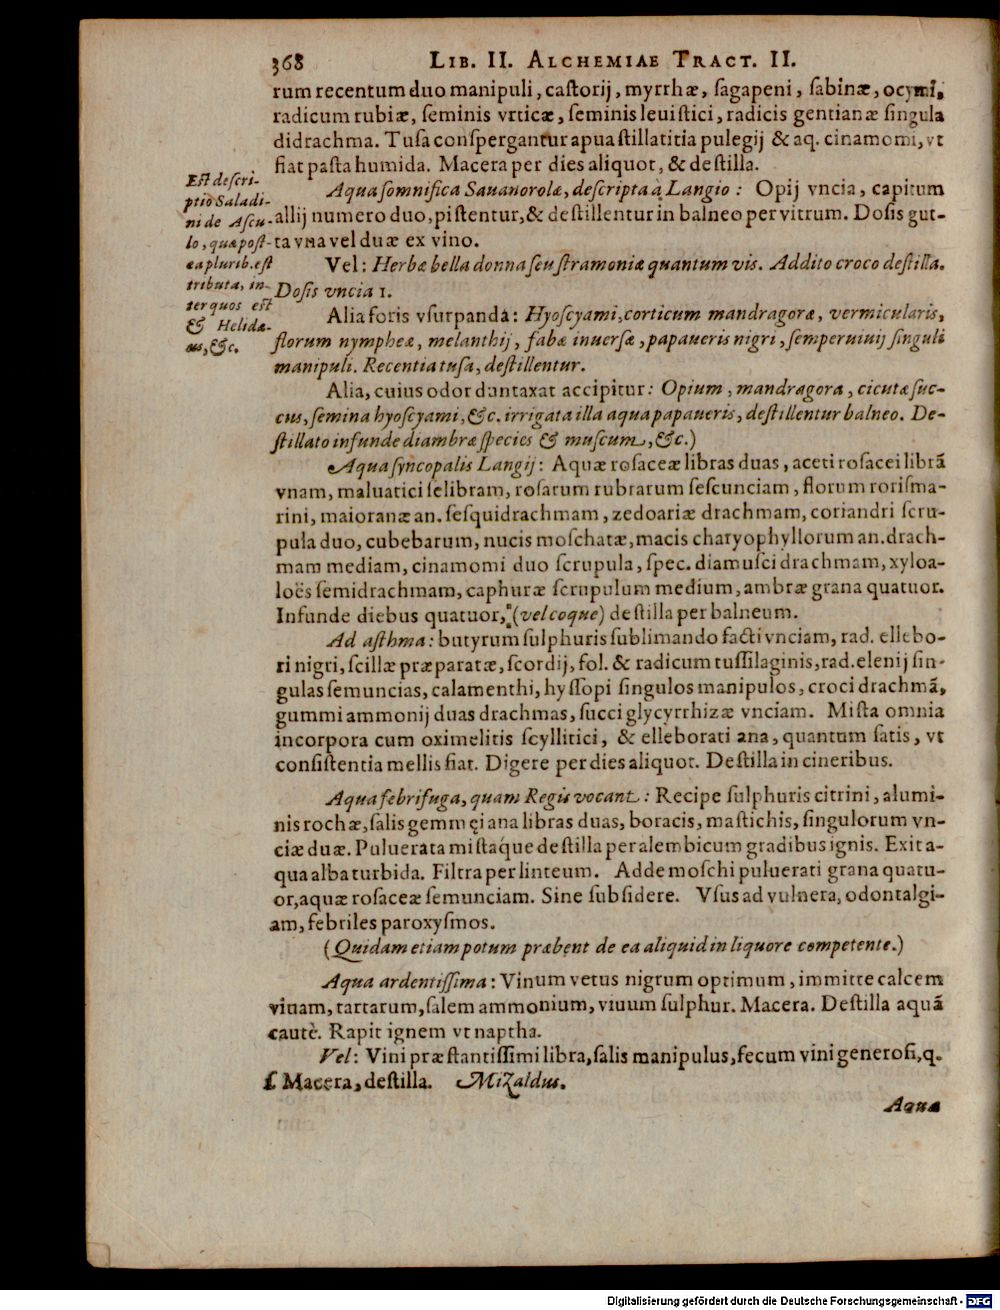 368 LIB. II. ALCHEMIAE TRACT. II.
rum recentum duo manipuli, caſtorij, myrrhæ, ſagapeni, ſabinæ, ocymi,
radicum rubiæ, ſeminis vrticæ, ſeminis leuiſtici, radicis gentianæ ſingula
didrachma. Tuſa conſpergantur apua ſtillatitia pulegij & aq. cinamomi, vt
fiat paſta humida. Macera per dies aliquot, & deſtilla.
Eſt deſcri-
ptio Saladi-
ni de Aſcu-
lo, quæ poſt-
ea plurib. eſt
tributa, in-
ter quos eſt
& Helidæ-
us, &c.
Aqua ſomnifica Sauanorolæ, deſcripta à Langio: Opij vncia, capitum
allij numero duo, piſtentur, & deſtillentur in balneo per vitrum. Doſis gut-
ta vna vel duæ ex vino.
Vel: Herbæ bella donna ſeu ſtramoniæ quantum vis. Addito croco deſtilla.
Doſis vncia 1.
Alia foris vſurpanda: Hyoſcyami, corticum mandragoræ, vermicularis,
florum nympheæ, melanthij, fabæ inuerſæ, papaueris nigri, ſemperuiuij ſinguli
manipuli. Recentia tuſa, deſtillentur.
Alia, cuius odor duntaxat accipitur: Opium, mandragora, cicutæ ſuc-
cus, ſemina hyoſcyami, &c. irrigata illa aqua papaueris, deſtillentur balneo. De-
ſtillato infunde diambræ ſpecies & muſcum, &c.)
Aqua ſyncopalis Langij: Aquæ roſaceæ libras duas, aceti roſacei librã
vnam, maluatici ſelibram, roſarum rubrarum ſeſcunciam, florum roriſma-
rini, maioranæ an. ſeſquidrachmam, zedoariæ drachmam, coriandri ſcru-
pula duo, cubebarum, nucis moſchatæ, macis charyophyllorum an. drach-
mam mediam, cinamomi duo ſcrupula, ſpec. diamuſci drachmam, xyloa-
loës ſemidrachmam, caphuræ ſcrupulum medium, ambræ grana quatuor.
Infunde diebus quatuor, (vel coque) deſtilla per balneum.
Ad aſthma: butyrum ſulphuris ſublimando facti vnciam, rad. ellebo-
ri nigri, ſcillæ præparatæ, ſcordij, fol. & radicum tuſſilaginis, rad. elenij ſin-
gulas ſemuncias, calamenthi, hyſſopi ſingulos manipulos, croci drachmã,
gummi ammonij duas drachmas, ſucci glycyrrhizæ vnciam. Miſta omnia
incorpora cum oximelitis ſcyllitici, & elleborati ana, quantum ſatis, vt
conſiſtentia mellis fiat. Digere per dies aliquot. Deſtilla in cineribus.
Aqua febrifuga, quam Regis vocant: Recipe ſulphuris citrini, alumi-
nis rochæ, ſalis gemmęi ana libras duas, boracis, maſtichis, ſingulorum vn-
ciæ duæ. Puluerata miſtáque deſtilla per alembicum gradibus ignis. Exit a-
qua alba turbida. Filtra per linteum. Adde moſchi puluerati grana quatu-
or, aquæ roſaceæ ſemunciam. Sine ſubſidere. Vſus ad vulnera, odontalgi-
am, febriles paroxyſmos.
(Quidam etiam potum præbent de ea aliquid in liquore competente.)
Aqua ardentiſſima: Vinum vetus nigrum optimum, immitte calcem
viuam, tartarum, ſalem ammonium, viuum ſulphur. Macera. Deſtilla aquã
cautè. Rapit ignem vt naptha.
Vel: Vini præſtantiſſimi libra, ſalis manipulus, fecum vini generoſi, q.
ſ. Macera, deſtilla. Mizaldus.
Aqua
Digitalisierung gefördert durch die Deutsche Forschungsgemeinschaft - DFG